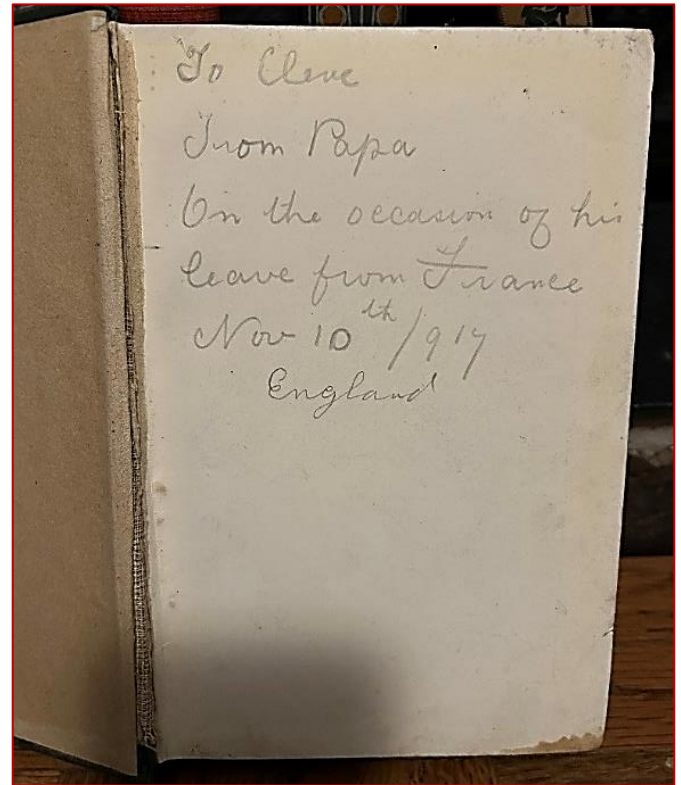 To Cleve
From Papa
On the occasion of his
leave from France
Nov 10th/917
England